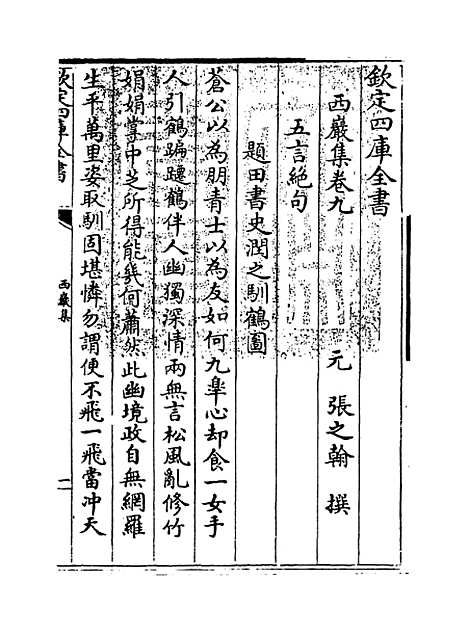 欽定四庫全書
西巖集卷九
元 張之翰 撰
五言絕句
題田書史潤之馴鶴圖
蒼公以為朋青士以為友如何九臯心却食一女手
人引鶴蹁躚鶴伴人幽獨深情兩無言松風亂修竹
娟娟掌中芝所得能幾何蕭然此幽境政自無網羅
生平萬里姿取馴固堪憐勿謂便不飛一飛當冲天
欽定四庫全書
西巖集
一